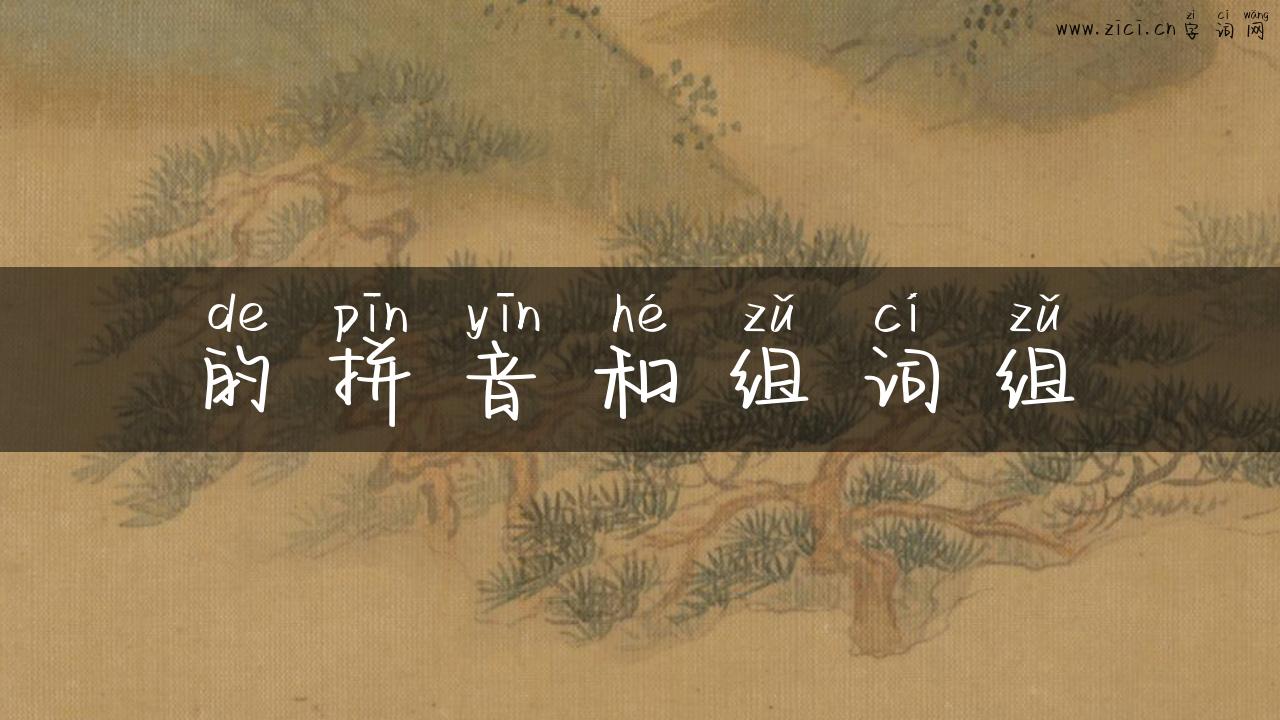 zì cí wǎng
www.zici.cn 字词网
de pīn yīn hé zǔ cí zǔ
的拼音和组词组